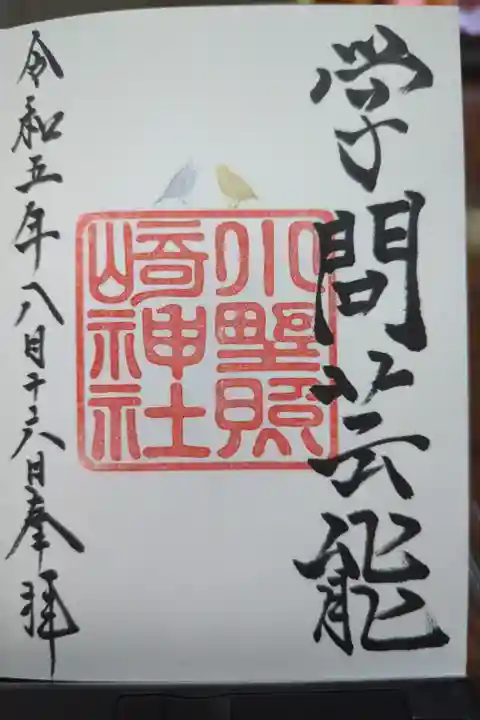 学問芸能
小野照
崎神社
令和五年八月十六日奉拝